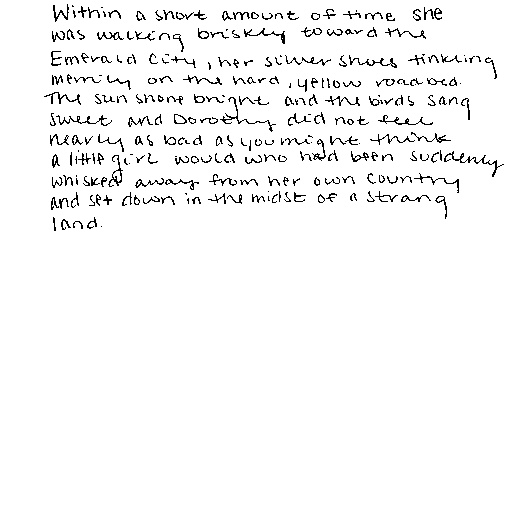 Within a short amount of time she
was walking briskly toward the
Emerald City, her silver shoes tinkling
merrily on the hard, yellow roadbed.
The sun shone bright and the birds sang
sweet and Dorothy did not feel
nearly as bad as you might think
a little girl would who had been suddenly
whisked away from her own country
and set down in the midst of a strang
land.